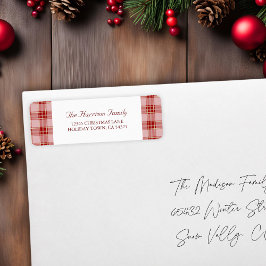 The Harrison Family
12345 CHRISTMAS LANE
HOLIDAY TOWN, CA 54321
The Madison Family
Winter
Snow Valley, C